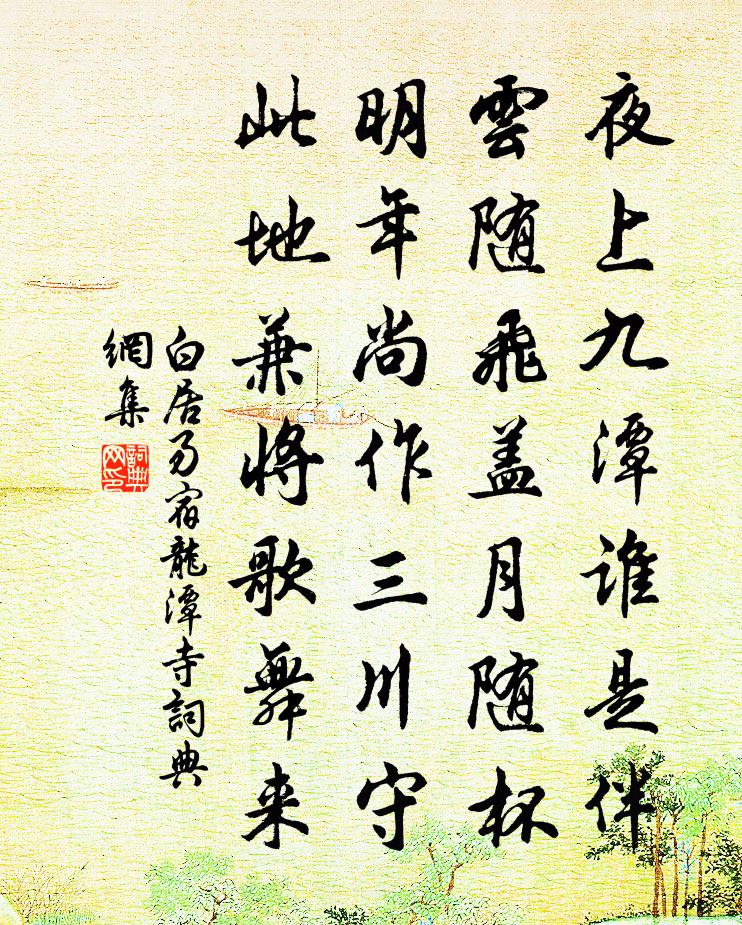 夜上九潭谁是伴
雲随飛盖月随杯
明年尚作三川守
此地兼将歌舞来
白居易宿龍潭寺詞典
網集
詞典
网印